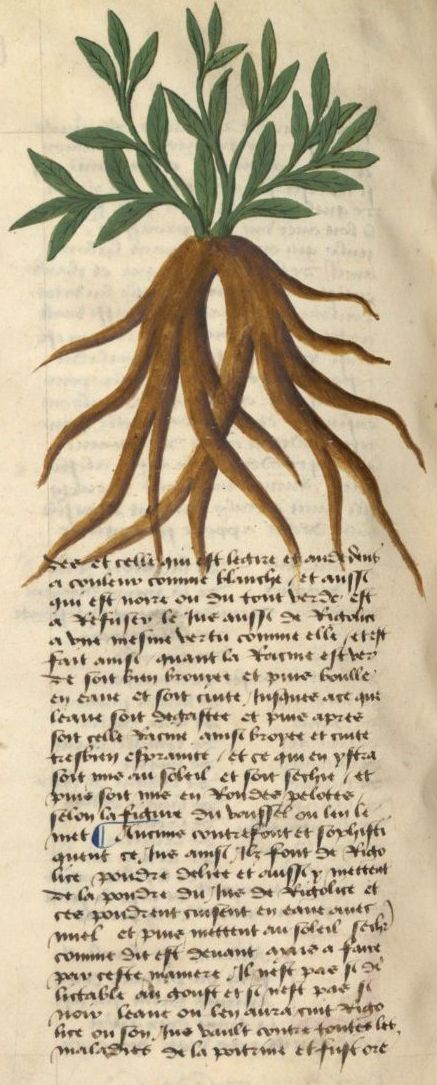 des et celle qui est legiere et au dedens
a couleur comme blanche / et aussi
qui est noire ou du tout verde est
a Refuser le Jus aussi de Rigolice
a vne mesme vertu comme elle / et est
fait ainsi / quant la Racine est ver
de soit bien broyee et puis boulle
en eaue et soit cuite / Jusques a ce que
leaue soit degastee et puis apres
soit celle racine ainsi broyee et cuite
tresbien espraincte / et ce qui en ystra
soit mis au soleil et soit sechie / et
puis soit mis en Rondes pelottes
selon la figure du vaissel ou len le
met Aucuns contrefont et sophisti
quent ce Jus ainsi / Ilz font de Rigo
lice pouldre deliee et aussi y mettent
de la pouldre du Jus de Rigolice et
ces pouldrent cuisent en eaue auec
miel et puis mettent au soleil sechr
comme dit est deuant mais a faire
par ceste maniere / Il nest pas si de
lictable au goust et si nest pas si
noir leaue ou len aura cuit Rigo
lice ou son Jus vault contre toutes les
maladies de la poitrine et fust ore